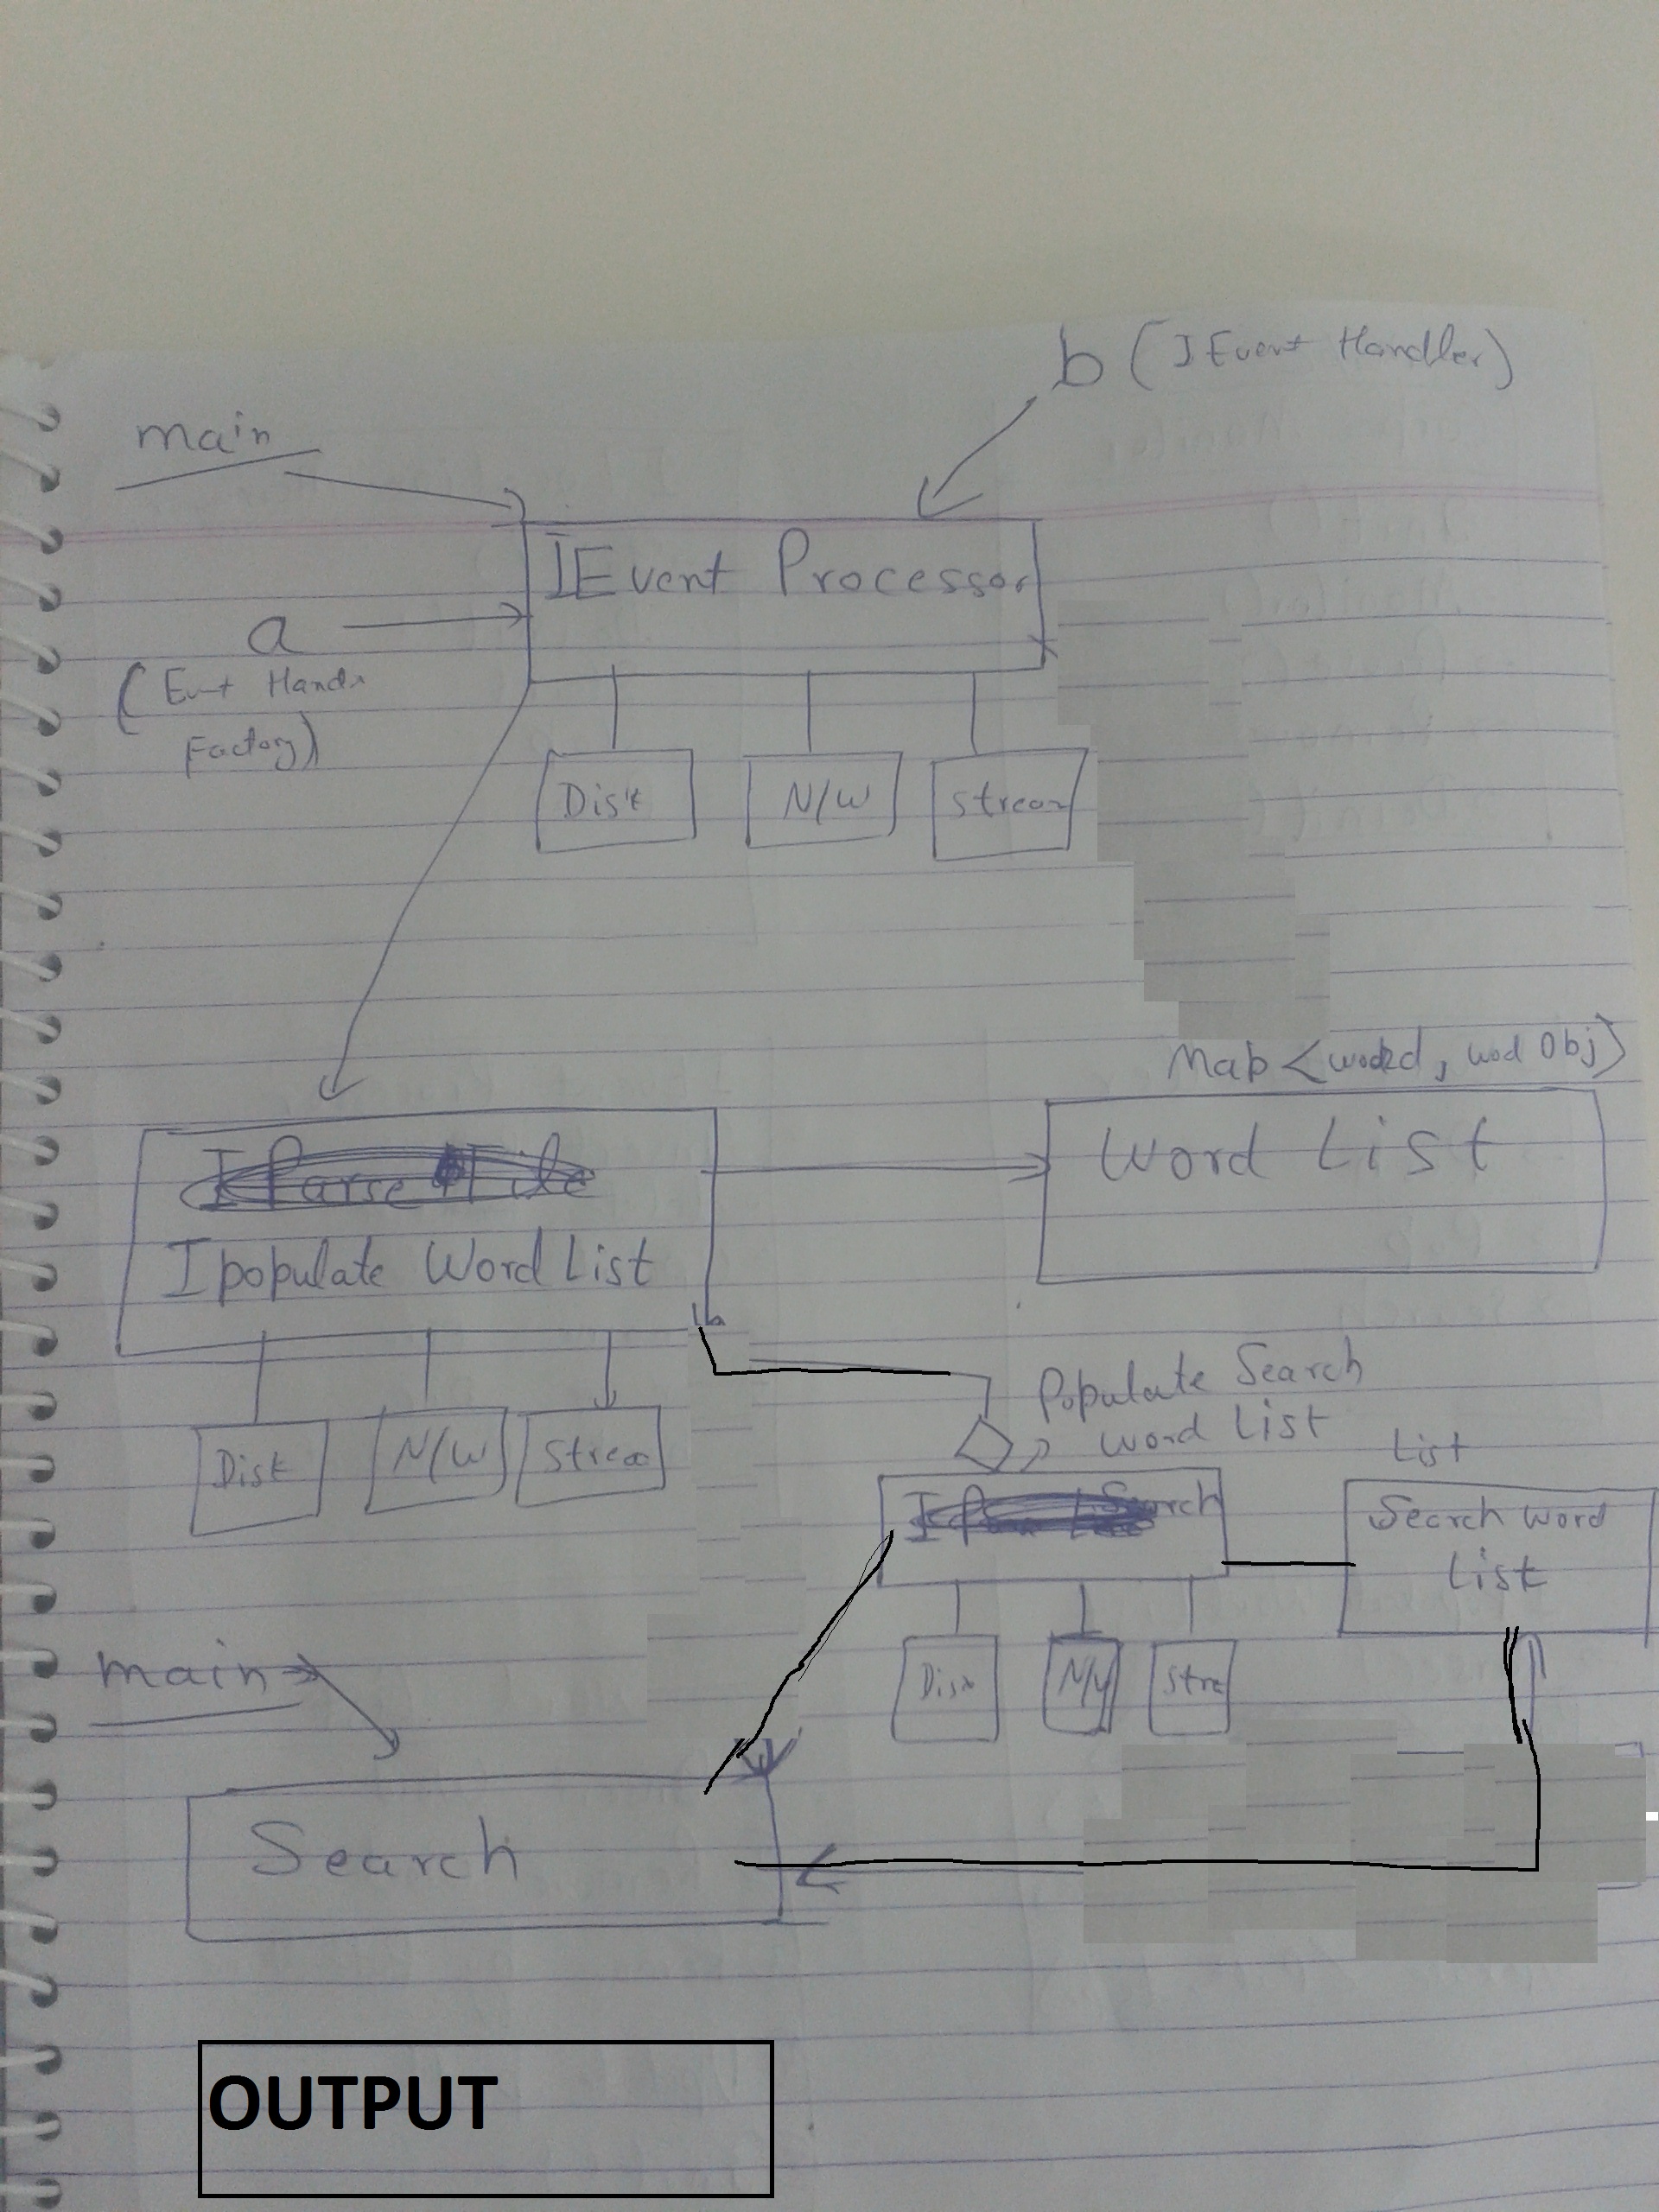 b (IEvent Handler)
main
IEvent Processor
a
( Evnt Handr
Factory)
Disk
N/W
Stream
Map <word, wod Obj>
Word List
I Parse File
I populate Word List
Populate Search
Word List
List
Disk
N/W
Search
Search Word
List
main
Disk
N/W
Stre
Search
OUTPUT